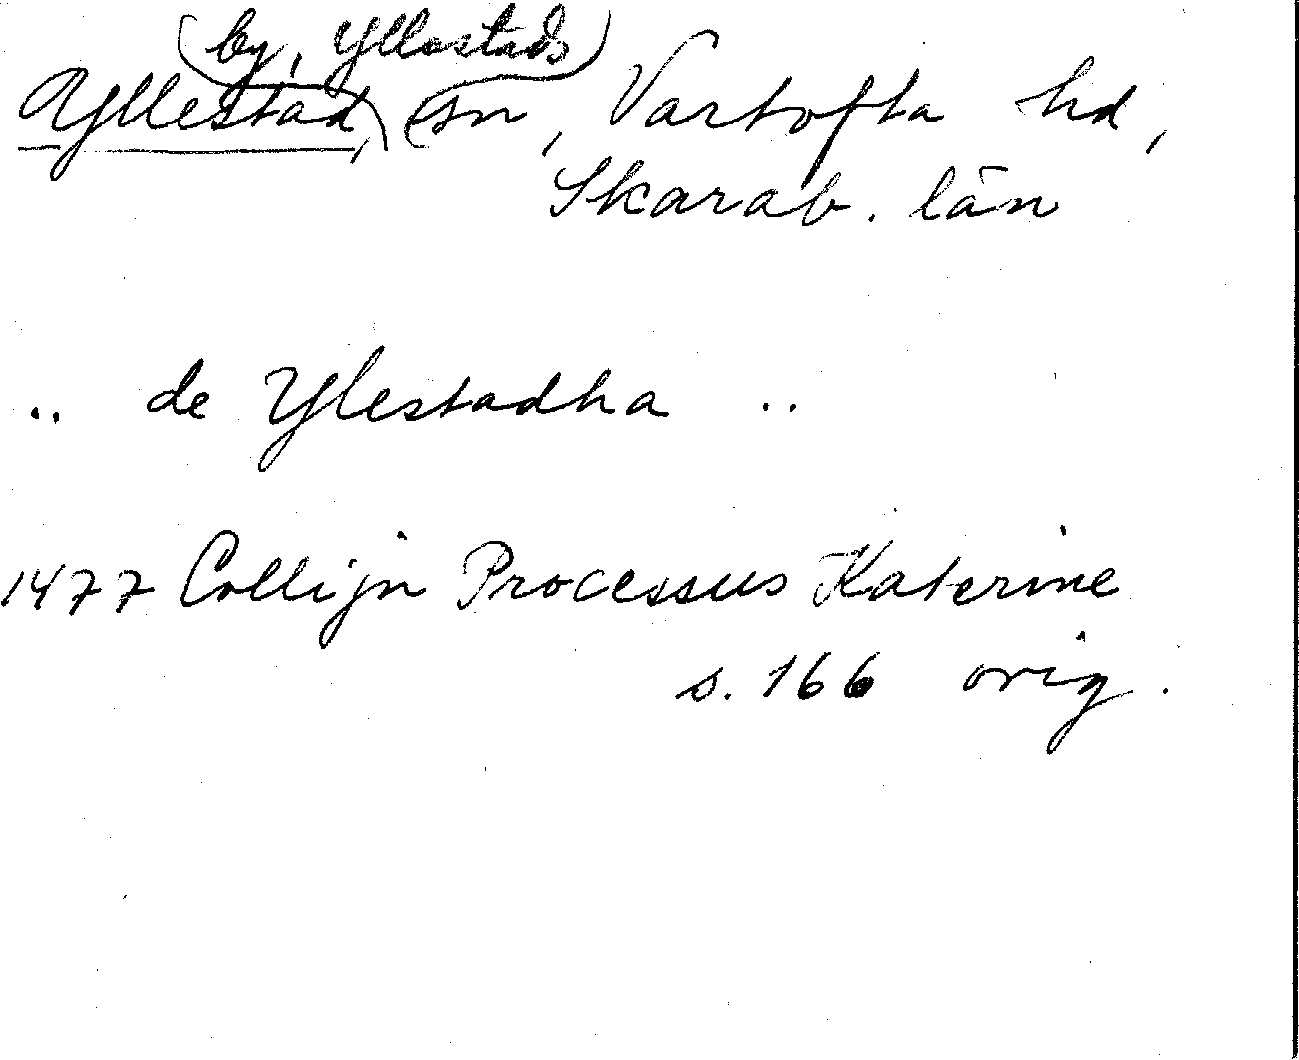 by, Yllestads
Yllestad, sn, Vartofta hd,
Skarab. län
.. de Ylestadha ..
1477 Collijn Processus Katerine
s. 166 orig.